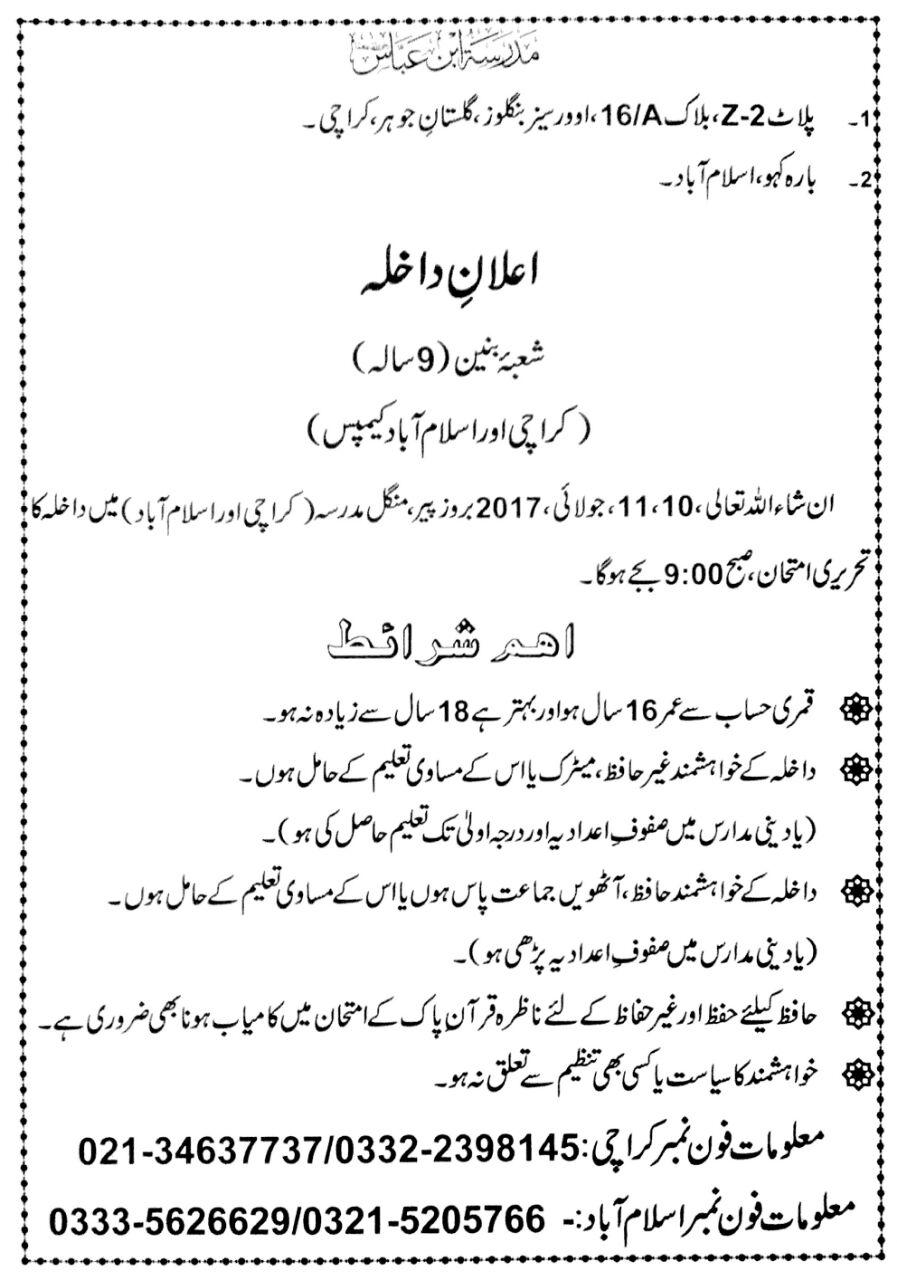 مدرسۃ ابن عباس
1۔ پلاٹ Z-2، بلاک 16/A، اوورسیز بنگلوز، گلستانِ جوہر، کراچی۔
2۔ بارہ کہو، اسلام آباد۔
اعلانِ داخلہ
شعبۂ بنین (9 سالہ)
(کراچی اور اسلام آباد کیمپس)
ان شاء اللہ تعالی، 10، 11، جولائی، 2017 بروز پیر، منگل مدرسہ (کراچی اور اسلام آباد) میں داخلہ کا
تحریری امتحان، صبح 9:00 بجے ہوگا۔
اھم شرائط
قمری حساب سے عمر 16 سال ہو اور بہتر ہے 18 سال سے زیادہ نہ ہو۔
داخلہ کے خواہشمند غیر حافظ، میٹرک یا اس کے مساوی تعلیم کے حامل ہوں۔
(یا دینی مدارس میں صفوفِ اعدادیہ اور درجہ اولیٰ تک تعلیم حاصل کی ہو)۔
داخلہ کے خواہشمند حافظ، آٹھویں جماعت پاس ہوں یا اس کے مساوی تعلیم کے حامل ہوں۔
(یا دینی مدارس میں صفوفِ اعدادیہ پڑھی ہو)۔
حافظ کیلئے حفظ اور غیر حفاظ کے لئے ناظرہ قرآن پاک کے امتحان میں کامیاب ہونا بھی ضروری ہے۔
خواہشمند کا سیاست یا کسی بھی تنظیم سے تعلق نہ ہو۔
معلومات فون نمبر کراچی: 021-34637737/0332-2398145
معلومات فون نمبر اسلام آباد:- 0333-5626629/0321-5205766